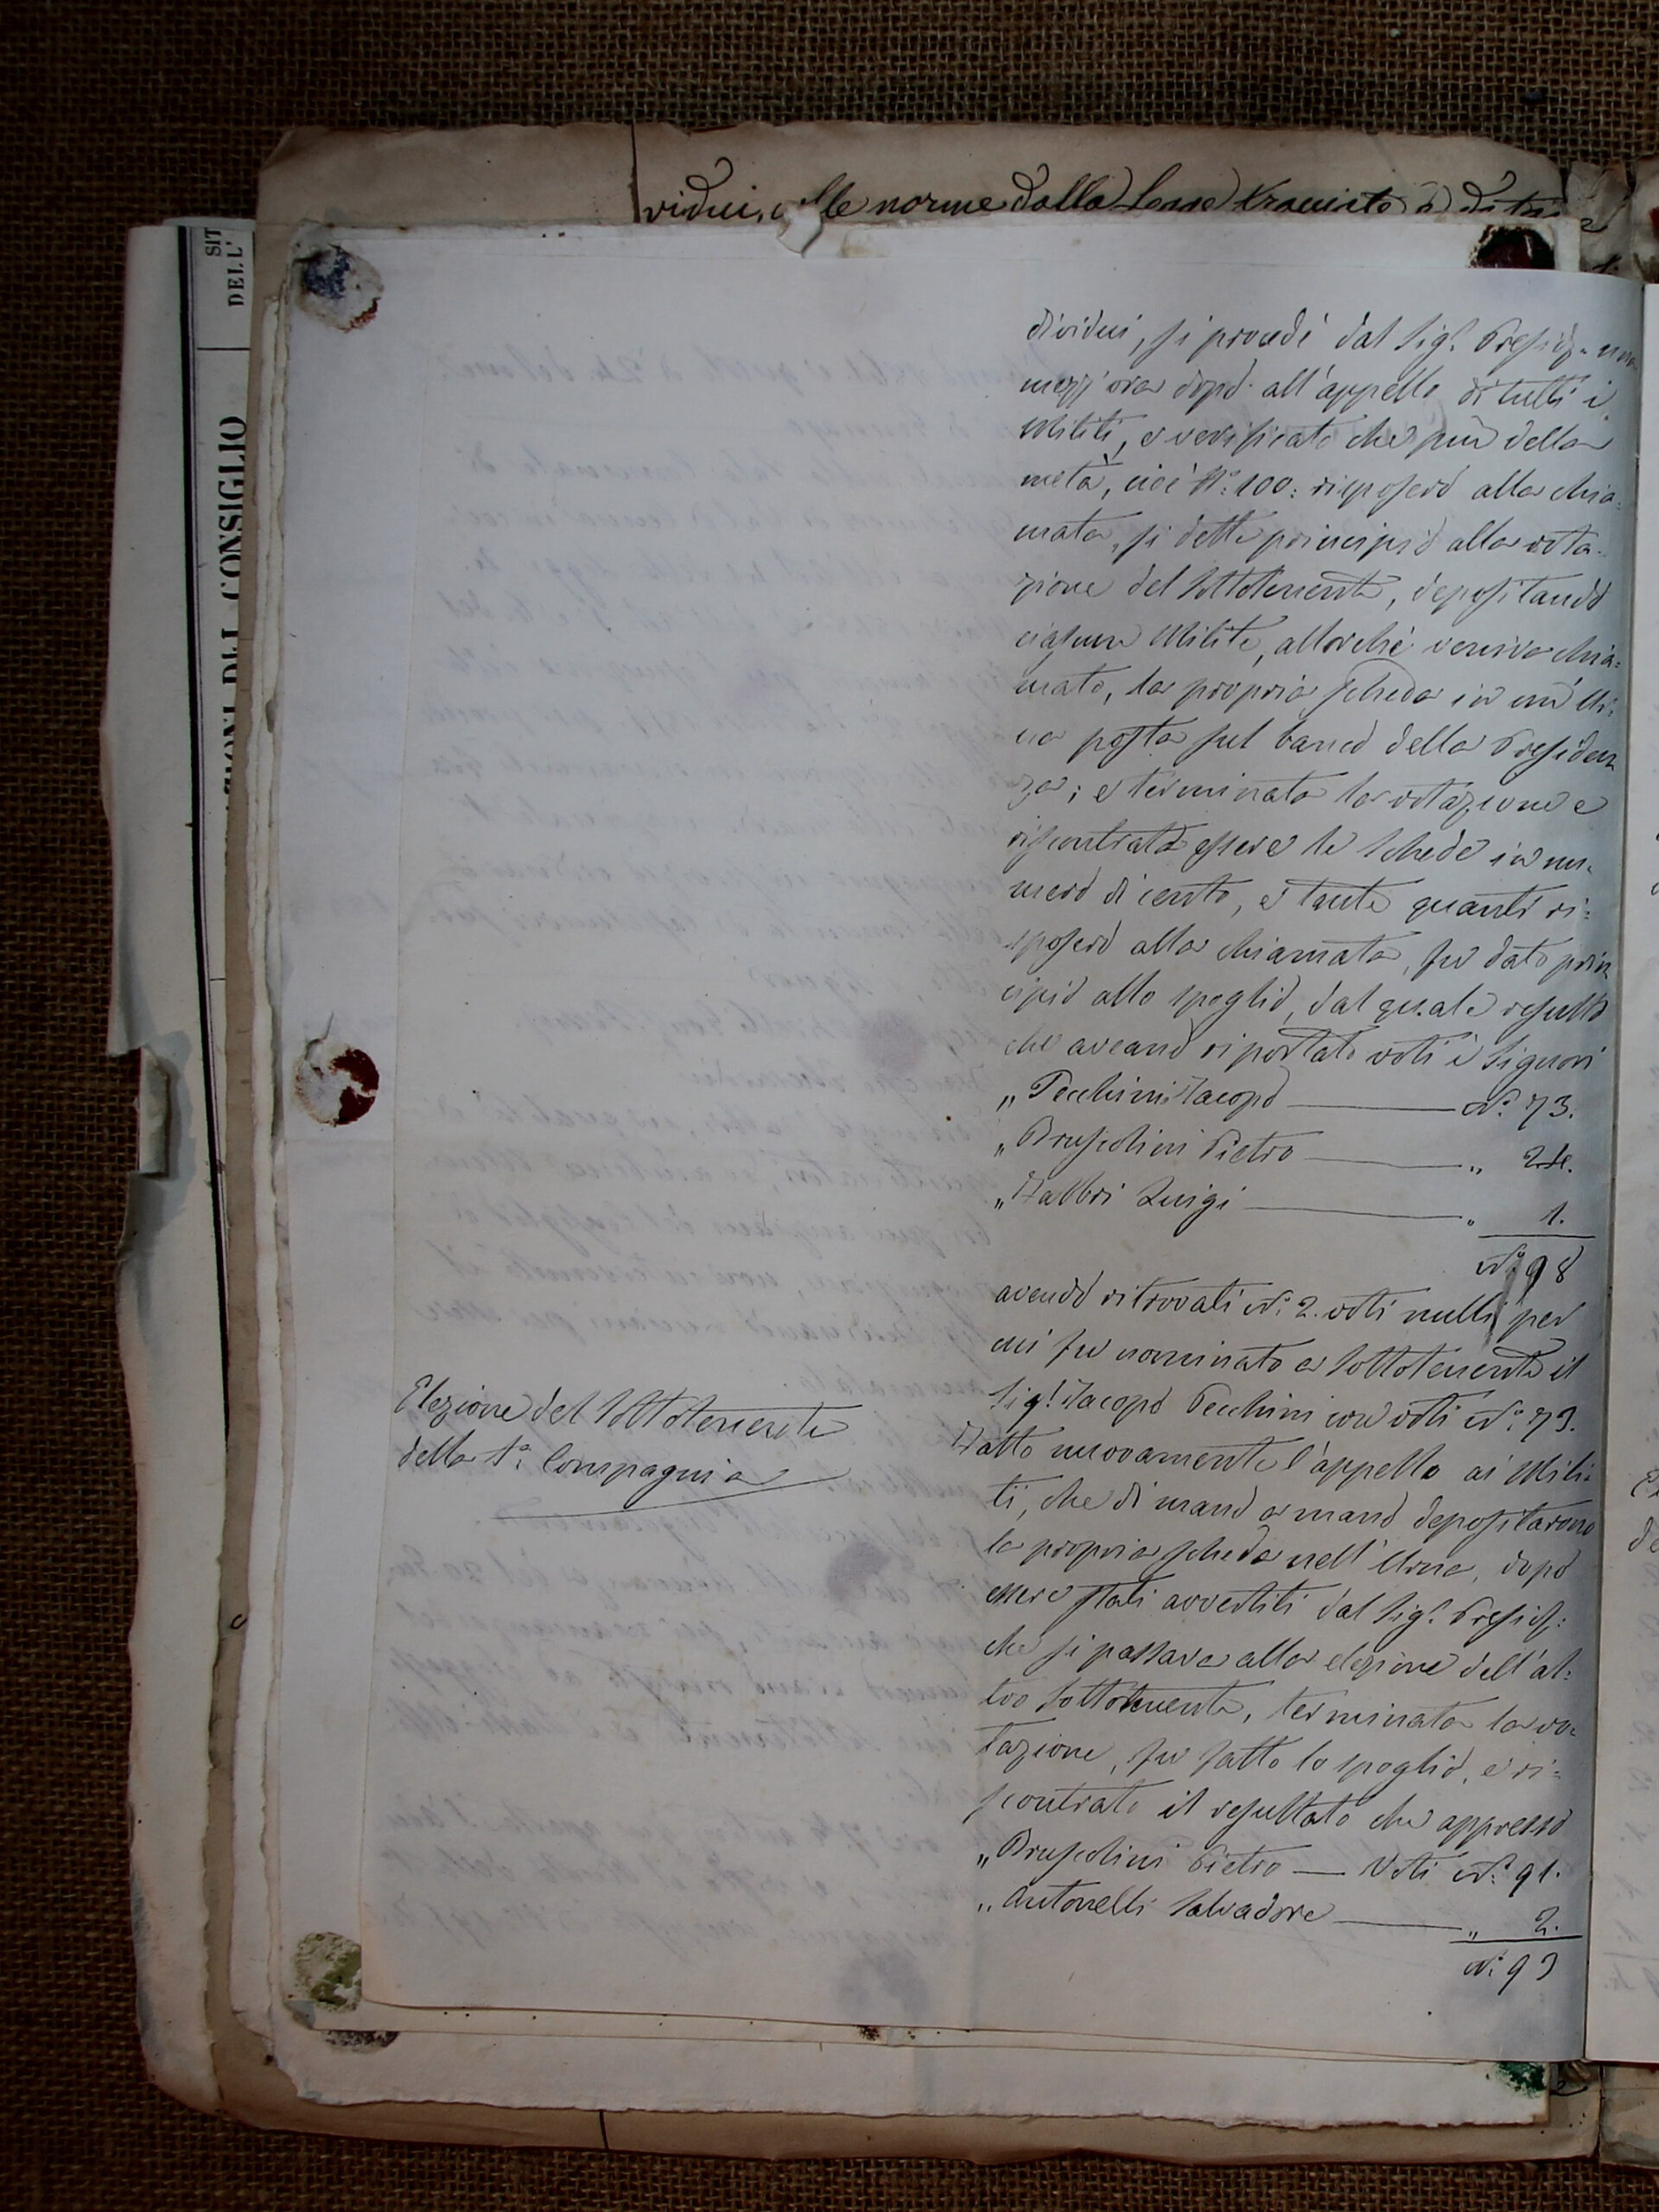 SIT
DELL'
DEL CONSIGLIO
vidui, alle norme dalla
dividui, si procedé dal Sig.r Presid.e una
mezz'ora dopo all'appello di tutti i
Militi, e verificato che più della
metà, cioè N.o 100: risposero alla chia=
mata, si dette principio alla vota-
zione del Sottotenente, depositando
ciascun Milite, allorché veniva chia=
mato, la propria scheda in un'Ur=
na posta sul banco della Presiden
za; e terminata la votazione e
riscontrato essere le schede in nu-
mero di cento, e tante quanti ri=
sposero alla chiamata, fu dato prin
cipio allo spoglio, dal quale resultò
che aveano riportato voti i Signori
„ Pecchini Jacopo — N.o 73.
„ Bruscolini Pietro — „ 24.
„ Fabbri Luigi — „ 1.
N.o 98
avendo ritrovati N.o 2. voti nulli per
cui fu nominato a Sottotenente il
Sig.r Jacopo Pecchini con voti N.o 73.
Elezione del Sottotenente
della 1.a Compagnia
Fatto nuovamente l'appello ai Mili=
ti, che di mano a mano depositarono
la propria scheda nell'Urna, dopo
essere stati avvertiti dal Sig.r Presid.e
che si passava alla elezione dell'al=
tro Sottotenente, terminata la vo-
tazione, fu fatto lo spoglio, e ri=
scontrato il resultato che appresso
„ Bruscolini Pietro — Voti N.o 91.
„ Antonelli Salvadore — „ 2.
N.o 93